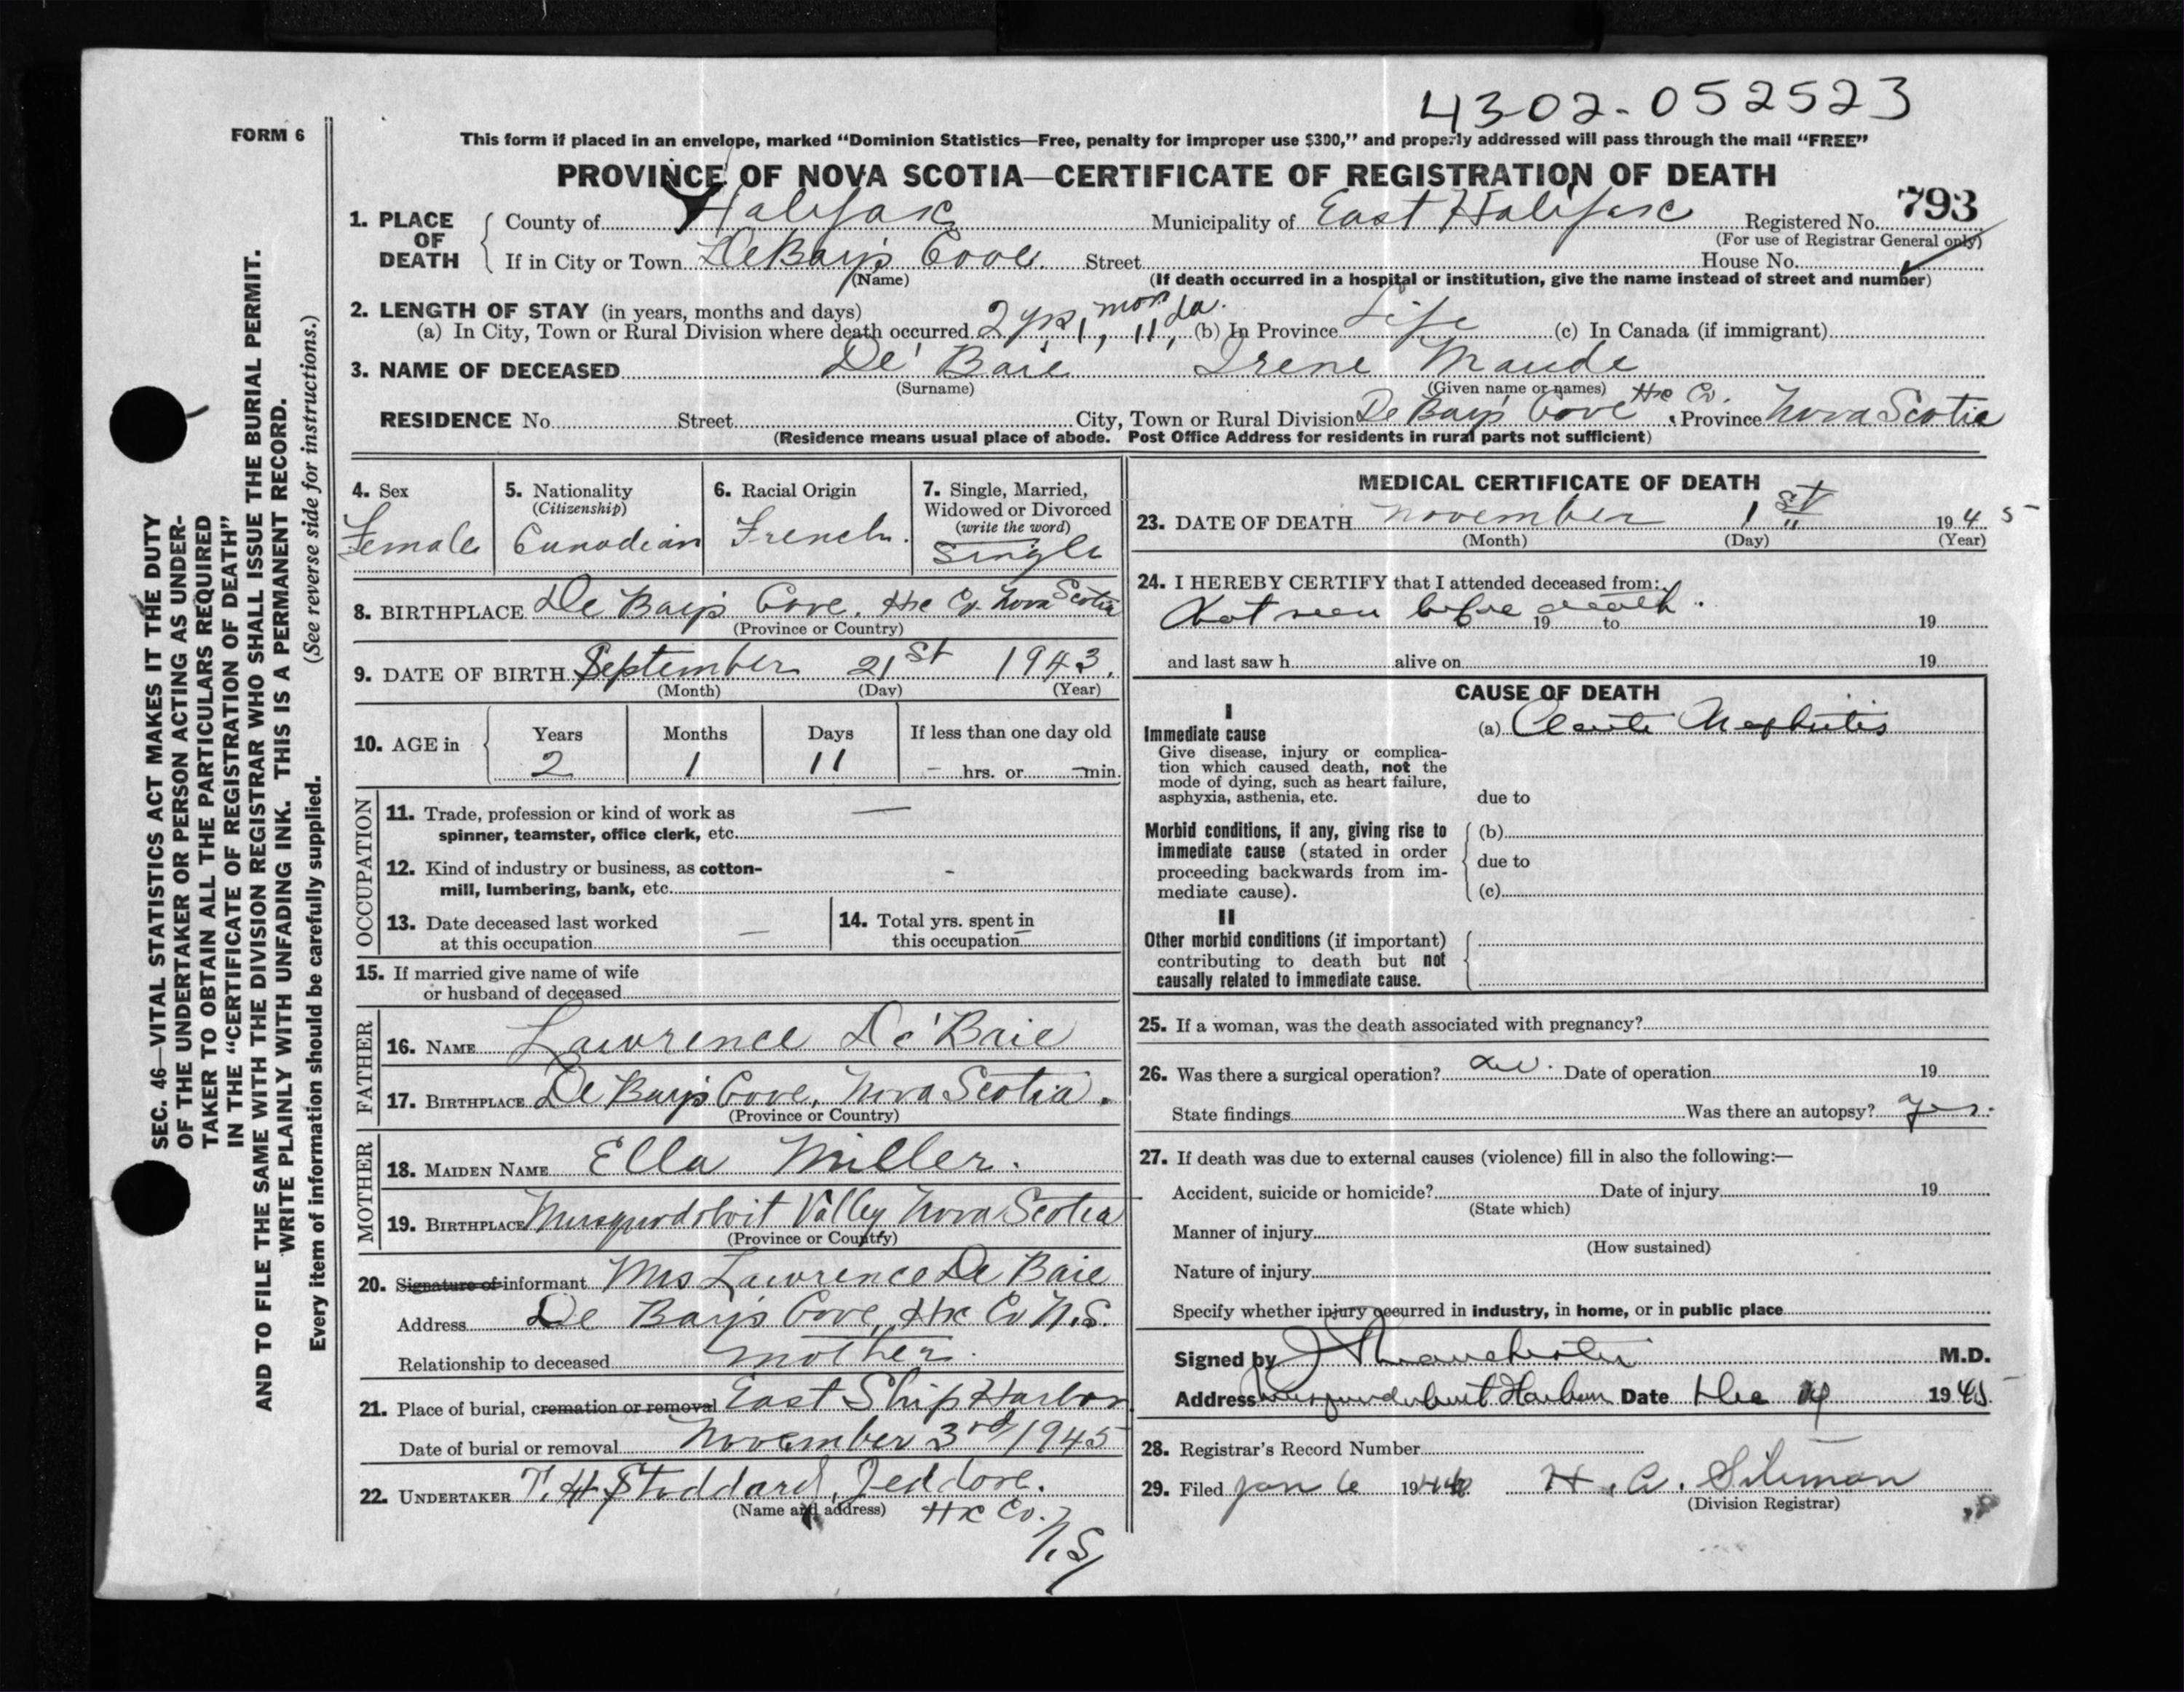 4302-052523
FORM 6
This form if placed in an envelope, marked "Dominion Statistics—Free, penalty for improper use $300," and properly addressed will pass through the mail "FREE"
PROVINCE OF NOVA SCOTIA—CERTIFICATE OF REGISTRATION OF DEATH
793
1. PLACE OF DEATH
County of Halifax Municipality of East Halifax Registered No.
(For use of Registrar General only)
If in City or Town DeBay's Cove. Street House No.
(Name) (If death occurred in a hospital or institution, give the name instead of street and number)
2. LENGTH OF STAY (in years, months and days)
(a) In City, Town or Rural Division where death occurred 2 yrs, 1 mon, 11 da. (b) In Province Life (c) In Canada (if immigrant)
3. NAME OF DECEASED De' Baie Irene Maude
(Surname) (Given name or names)
RESIDENCE No. Street City, Town or Rural Division De Bay's Cove Hx Co. Province Nova Scotia
(Residence means usual place of abode. Post Office Address for residents in rural parts not sufficient)
4. Sex
Female
5. Nationality
(Citizenship)
Canadian
6. Racial Origin
French.
7. Single, Married,
Widowed or Divorced
(write the word)
Single
8. BIRTHPLACE De Bay's Cove, Hx Co. Nova Scotia
(Province or Country)
9. DATE OF BIRTH September 21st 1943.
(Month) (Day) (Year)
10. AGE in
Years Months Days If less than one day old
2 1 11 – hrs. or — min.
OCCUPATION
11. Trade, profession or kind of work as —
spinner, teamster, office clerk, etc.
12. Kind of industry or business, as cotton- -
mill, lumbering, bank, etc.
13. Date deceased last worked
at this occupation —
14. Total yrs. spent in
this occupation –
15. If married give name of wife
or husband of deceased
FATHER
16. NAME Lawrence De'Baie
17. BIRTHPLACE De Bay's Cove, Nova Scotia.
(Province or Country)
MOTHER
18. MAIDEN NAME Ella Miller.
19. BIRTHPLACE Musquodoboit Valley Nova Scotia
(Province or Country)
20. Signature of informant Mrs Lawrence De Baie
Address De Bay's Cove, Hx Co N.S.
Relationship to deceased mother.
21. Place of burial, cremation or removal East Ship Harbor
Date of burial or removal November 3rd 1945
22. UNDERTAKER T. H. Stoddard, Jeddore.
(Name and address) Hx Co.
N.S/
MEDICAL CERTIFICATE OF DEATH
23. DATE OF DEATH November 1st 1945
(Month) (Day) (Year)
24. I HEREBY CERTIFY that I attended deceased from:
Not seen before death.
19 to 19
and last saw h alive on 19
CAUSE OF DEATH
I
Immediate cause
Give disease, injury or complica-
tion which caused death, not the
mode of dying, such as heart failure,
asphyxia, asthenia, etc.
(a) Acute Nephritis
due to
Morbid conditions, if any, giving rise to
immediate cause (stated in order
proceeding backwards from im-
mediate cause).
(b)
due to
(c)
II
Other morbid conditions (if important)
contributing to death but not
causally related to immediate cause.
25. If a woman, was the death associated with pregnancy?
26. Was there a surgical operation? Date of operation 19
State findings Was there an autopsy? yes.
27. If death was due to external causes (violence) fill in also the following:—
Accident, suicide or homicide? Date of injury 19
(State which)
Manner of injury
(How sustained)
Nature of injury
Specify whether injury occurred in industry, in home, or in public place
Signed by M.D.
Address Musquodoboit Harbour Date Dec 19 1945
28. Registrar's Record Number
29. Filed Jan 6 1946 H. A.
(Division Registrar)
SEC. 46—VITAL STATISTICS ACT MAKES IT THE DUTY
OF THE UNDERTAKER OR PERSON ACTING AS UNDER-
TAKER TO OBTAIN ALL THE PARTICULARS REQUIRED
IN THE "CERTIFICATE OF REGISTRATION OF DEATH"
AND TO FILE THE SAME WITH THE DIVISION REGISTRAR WHO SHALL ISSUE THE BURIAL PERMIT.
WRITE PLAINLY WITH UNFADING INK. THIS IS A PERMANENT RECORD.
Every item of information should be carefully supplied. (See reverse side for instructions.)